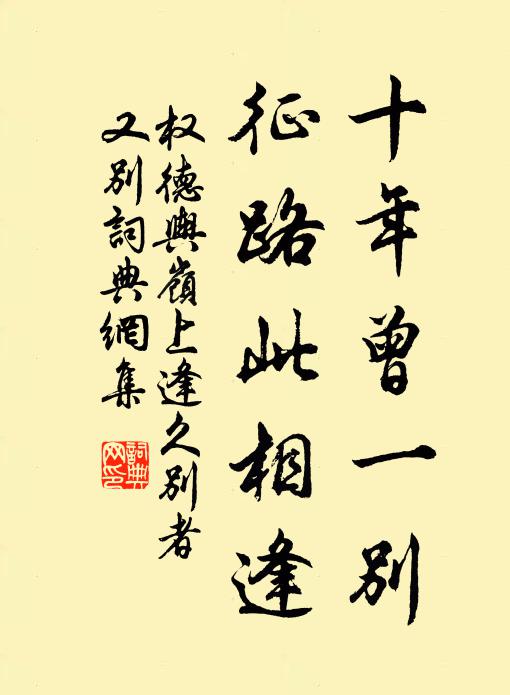 十年曾一别
征路此相逢
权德舆嶺上逢久别者
又别詞典網集
詞典
网印